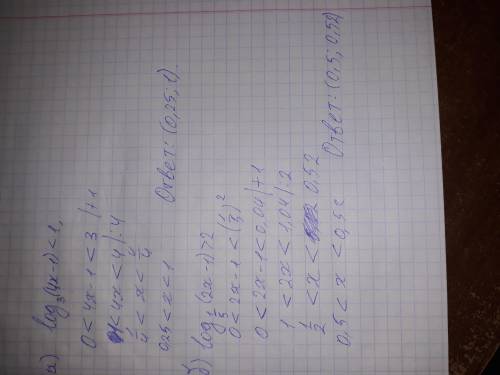 а) log₃(4x-1) < 1,
0 < 4x-1 < 3 | +1
1 < 4x < 4 | : 4
1/4 < x < 4/4
0,25 < x < 1 Ответ: (0,25; 1)
б) log_{1/5}(2x-1) > 2
0 < 2x-1 < (1/5)²
0 < 2x-1 < 0,04 | +1
1 < 2x < 1,04 | : 2
1/2 < x < 0,52
0,5 < x < 0,52 Ответ: (0,5; 0,52)